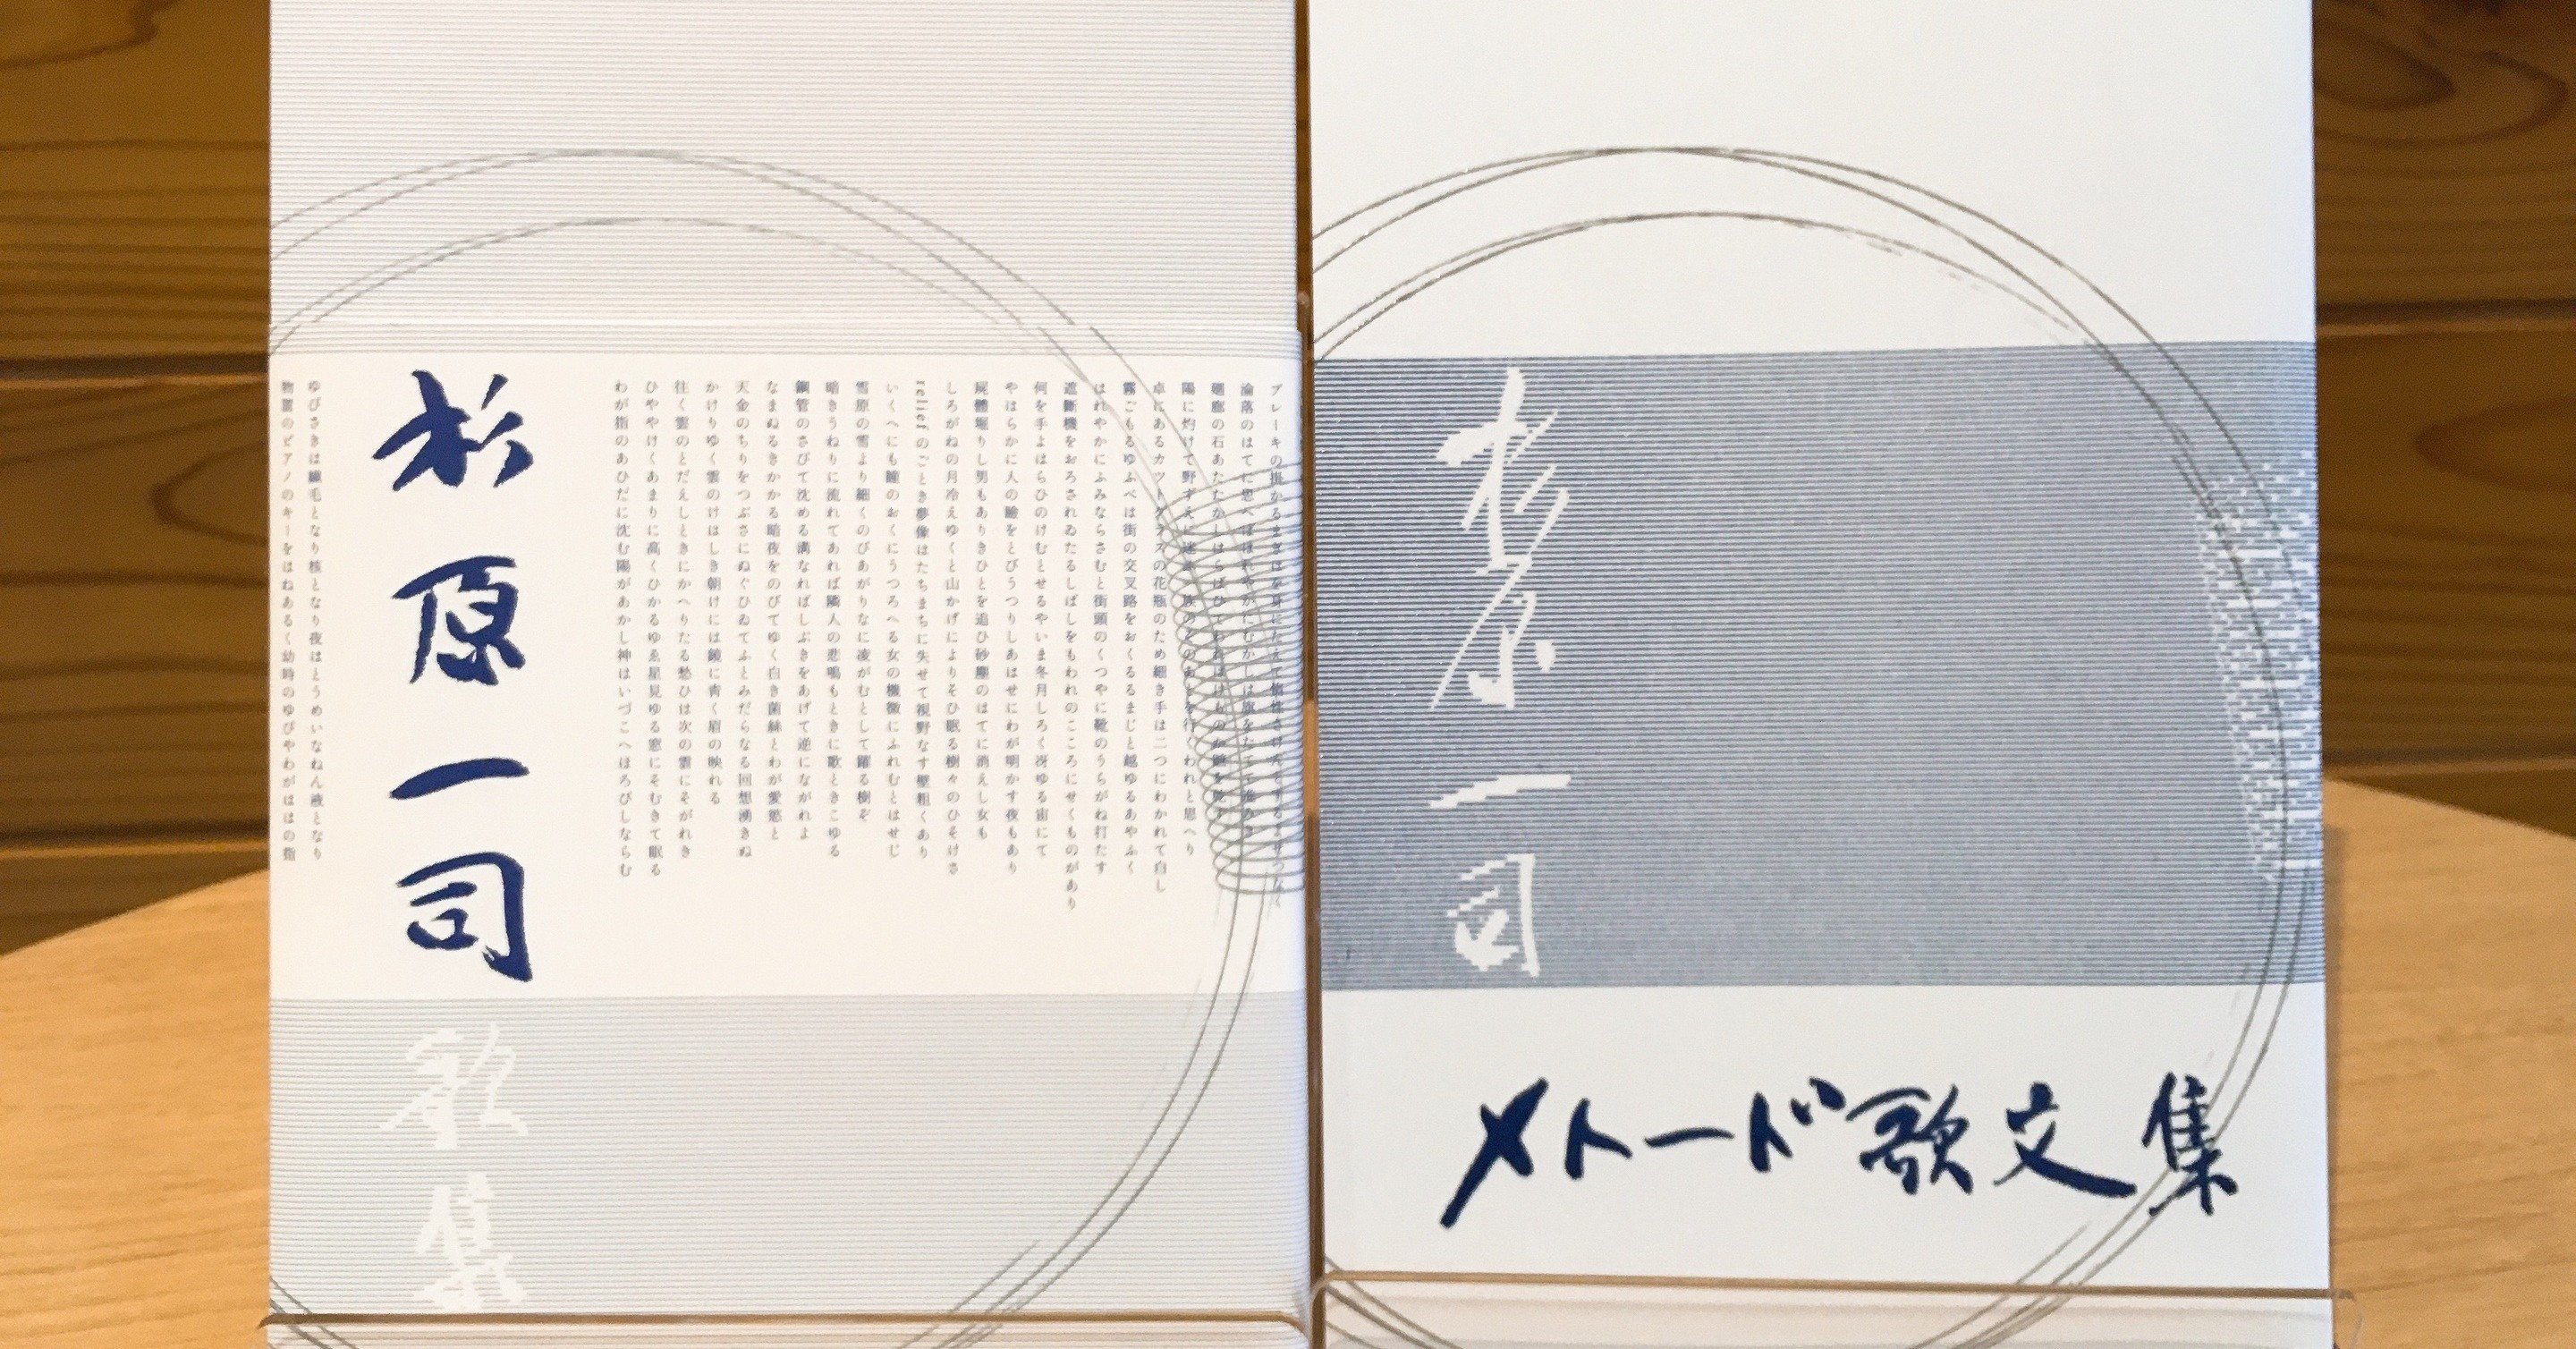 ブレーキの掛かるまぎはを身にたへて惰性
淪落のはてに思へば
廻廊の石あたたかし
陽に灼けて野ずゑに われと思へり
卓にあるカットグラスの花瓶のため細き手は二つにわかれて白し
霧ごもるゆふべは街の交叉路をおくるるまじと越ゆるあやふく
はれやかにふみならさむと街頭のくつやに靴のうらがね打たす
遮斷機をおろされゐたるしばしをもわれのこころにせくものがあり
何を手よはらひのけむとせるやいま冬月しろく冴ゆる宙にて
やはらかに人の瞼をとびうつりしあはせにわが明かす夜もあり
屍體堀りし男もありきひとを追ひ砂塵のはてに消えし女も
しろがねの月冷えゆくと山かげによりそひ眠る樹々のひそけさ
reliefのごとき夢像はたちまちに失せて視野なす壁粗くあり
いくへにも瞳のおくにうつろへる女の機微にふれむとはせじ
雪原の雪より細くのびあがりなに凌がむとして躍る樹ぞ
暗きうねりに流れてあれば隣人の悲鳴もときに歌ときこゆる
鋼管のさびて沈める溝なればしぶきをあげて逆にながれよ
なまぬるきかかる暗夜をのびてゆく白き菌絲とわが愛慾と
天金のちりをつぶさにぬぐひゐてふとみだらなる回想湧きぬ
かけりゆく雲のけはしき朝けには鏡に青く眉の映れる
往く雲のとだえしときにかへりたる愁ひは次の雲にそがれき
ひややけくあまりに高くひかるゆゑ星見ゆる窓にそむきて眠る
わが指のあひだに沈む陽があかし神はいづこへほろびしならむ
杉原一司
歌集
ゆびさきは纖毛となり核となり夜はとうめいなねん液となり
物置のピアノのキーをはねあるく幼時のゆびやわがははの指
杉原一司
メトード歌文集